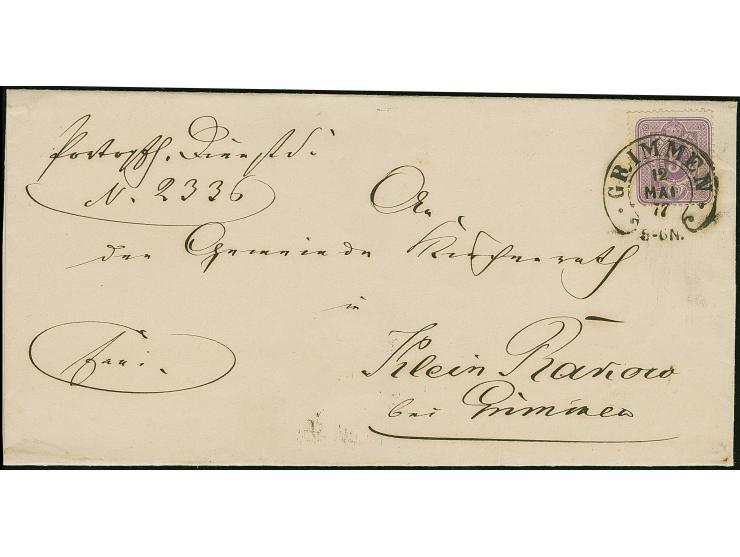 Portopfl. Dienst S.
N. 2336
An
den Gemeinde Kirchenrath
in
Klein Rakow
bei Grimmen
frei.
GRIMMEN
12
MAI
77
5-6N.